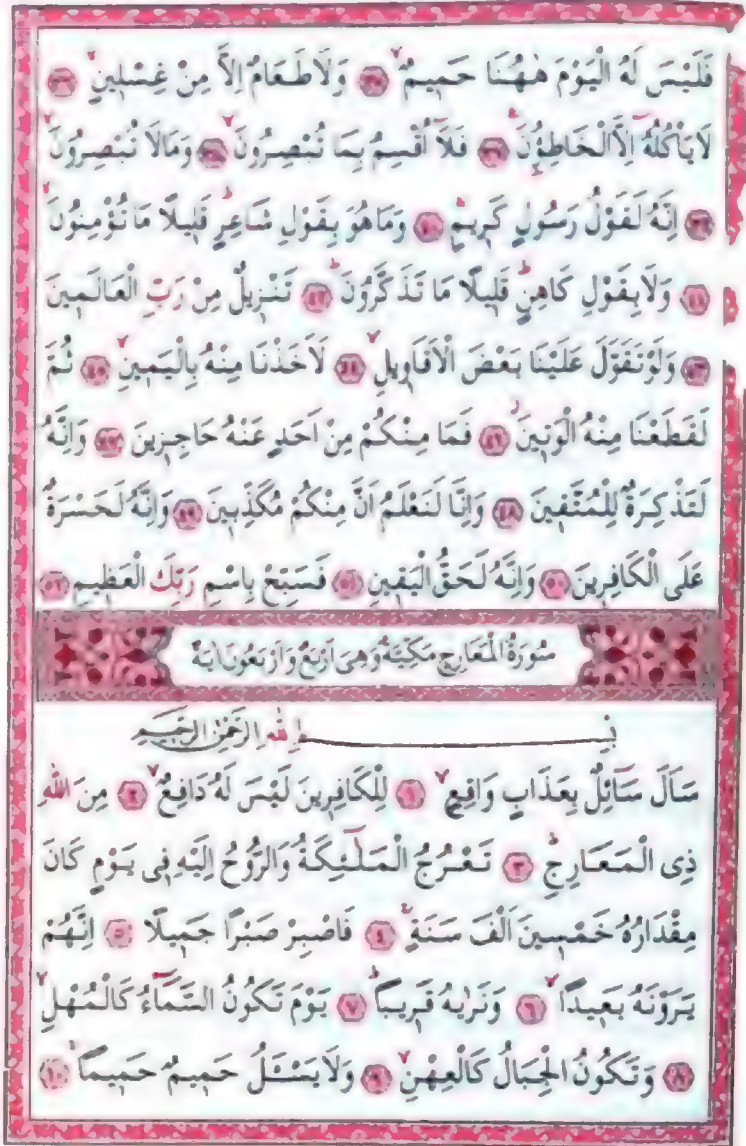 فَلَيْسَ لَهُ الْيَوْمَ هٰهُنَا حَمِيمٌۙ ﴿٣٥﴾ وَلَا طَعَامٌ اِلَّا مِنْ غِسْلِينٍۙ ﴿٣٦﴾
لَا يَأْكُلُهُٓ اِلَّا الْخَاطِؤُ۫نَ۟ ﴿٣٧﴾ فَلَٓا اُقْسِمُ بِمَا تُبْصِرُونَۙ ﴿٣٨﴾ وَمَا لَا تُبْصِرُونَۙ
﴿٣٩﴾ اِنَّهُ لَقَوْلُ رَسُولٍ كَرِيمٍۚ ﴿٤٠﴾ وَمَا هُوَ بِقَوْلِ شَاعِرٍۜ قَلِيلًا مَا تُؤْمِنُونَۙ
﴿٤١﴾ وَلَا بِقَوْلِ كَاهِنٍۜ قَلِيلًا مَا تَذَكَّرُونَۜ ﴿٤٢﴾ تَنْزِيلٌ مِنْ رَبِّ الْعَالَمِينَ
﴿٤٣﴾ وَلَوْ تَقَوَّلَ عَلَيْنَا بَعْضَ الْاَقَاوِيلِۙ ﴿٤٤﴾ لَاَخَذْنَا مِنْهُ بِالْيَمِينِۙ ﴿٤٥﴾ ثُمَّ
لَقَطَعْنَا مِنْهُ الْوَتِينَۘ ﴿٤٦﴾ فَمَا مِنْكُمْ مِنْ اَحَدٍ عَنْهُ حَاجِزِينَ ﴿٤٧﴾ وَاِنَّهُ
لَتَذْكِرَةٌ لِلْمُتَّقِينَ ﴿٤٨﴾ وَاِنَّا لَنَعْلَمُ اَنَّ مِنْكُمْ مُكَذِّبِينَ ﴿٤٩﴾ وَاِنَّهُ لَحَسْرَةٌ
عَلَى الْكَافِرِينَ ﴿٥٠﴾ وَاِنَّهُ لَحَقُّ الْيَقِينِ ﴿٥١﴾ فَسَبِّحْ بِاسْمِ رَبِّكَ الْعَظِيمِ ﴿٥٢﴾
سُورَةُ الْمَعَارِجِ مَكِّيَّةٌ وَهِيَ اَرْبَعٌ وَاَرْبَعُونَ اٰيَةً
بِسْمِ اللّٰهِ الرَّحْمٰنِ الرَّحِيمِ
سَاَلَ سَٓائِلٌ بِعَذَابٍ وَاقِعٍۙ ﴿١﴾ لِلْكَافِرِينَ لَيْسَ لَهُ دَافِعٌۙ ﴿٢﴾ مِنَ اللّٰهِ
ذِي الْمَعَارِجِۜ ﴿٣﴾ تَعْرُجُ الْمَلٰٓئِكَةُ وَالرُّوحُ اِلَيْهِ فِي يَوْمٍ كَانَ
مِقْدَارُهُ خَمْسِينَ اَلْفَ سَنَةٍۚ ﴿٤﴾ فَاصْبِرْ صَبْرًا جَمِيلًا ﴿٥﴾ اِنَّهُمْ
يَرَوْنَهُ بَعِيدًاۙ ﴿٦﴾ وَنَرٰيهُ قَرِيبًاۜ ﴿٧﴾ يَوْمَ تَكُونُ السَّمَٓاءُ كَالْمُهْلِۙ
﴿٨﴾ وَتَكُونُ الْجِبَالُ كَالْعِهْنِۙ ﴿٩﴾ وَلَا يَسْـَٔلُ حَمِيمٌ حَمِيمًاۚ ﴿١٠﴾